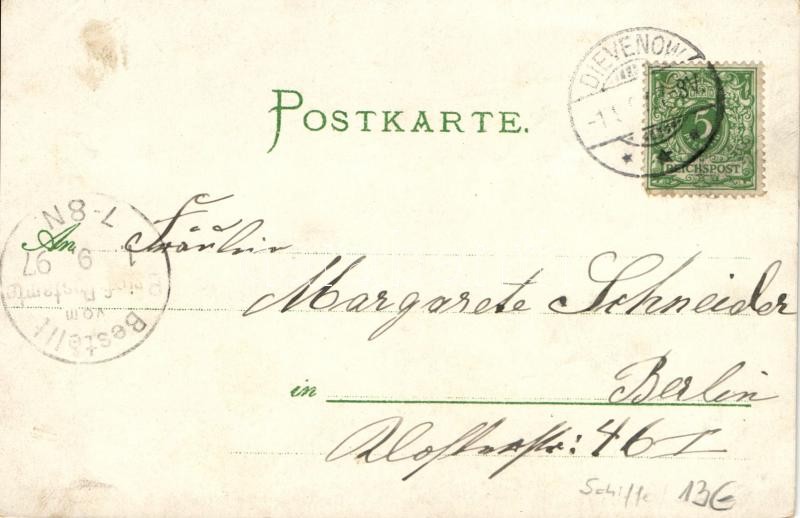 POSTKARTE.
DIEVENOW
5
REICHSPOST
7-8N
1 9 97
Bestellt
vom
Postamte
An Fräulein
Margarete Schneider
in Berlin
Klosterstr: 46 I
Schiffe 13€